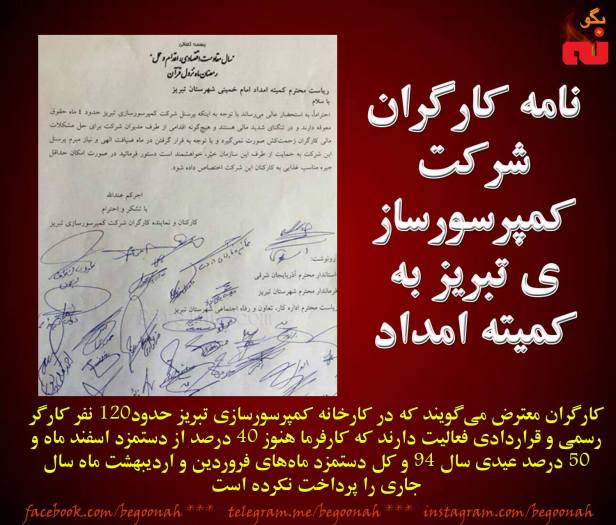 بگو
نه
نامه کارگران
شرکت
کمپرسورساز
ی تبریز به
کمیته امداد
بسمه تعالی
رمضان ماه نزول قرآن
ریاست محترم کمیته امداد امام خمینی شهرستان تبریز
با سلام
احتراماً، به استحضار عالی می‌رساند با توجه به اینکه پرسنل شرکت کمپرسورسازی تبریز حدود ۴ ماه حقوق
معوقه دارند و در تنگنای شدید مالی هستند و هیچ‌گونه اقدامی از طرف مدیران شرکت برای حل مشکلات
مالی کارگران زحمت‌کش صورت نمی‌گیرد و با توجه به قرار گرفتن در ماه ضیافت الهی و نیاز مبرم پرسنل
این شرکت به حمایت از طرف این سازمان خیّر، خواهشمند است دستور فرمائید در صورت امکان حداقل
جیره مناسب غذایی به کارکنان این شرکت اختصاص داده شود.
اجرکم عندالله
با تشکر و احترام
کارکنان و نماینده کارگران شرکت کمپرسورسازی تبریز
رونوشت:
استاندار محترم آذربایجان شرقی
فرماندار محترم شهرستان تبریز
ریاست محترم اداره کار، تعاون و رفاه اجتماعی شهرستان تبریز
کارگران معترض می‌گویند که در کارخانه کمپرسورسازی تبریز حدود120 نفر کارگر
رسمی و قراردادی فعالیت دارند که کارفرما هنوز 40 درصد از دستمزد اسفند ماه و
50 درصد عیدی سال 94 و کل دستمزد ماه‌های فروردین و اردیبهشت ماه سال
جاری را پرداخت نکرده است
facebook.com/begoonah *** telegram.me/begoonah *** instagram.com/begoonah